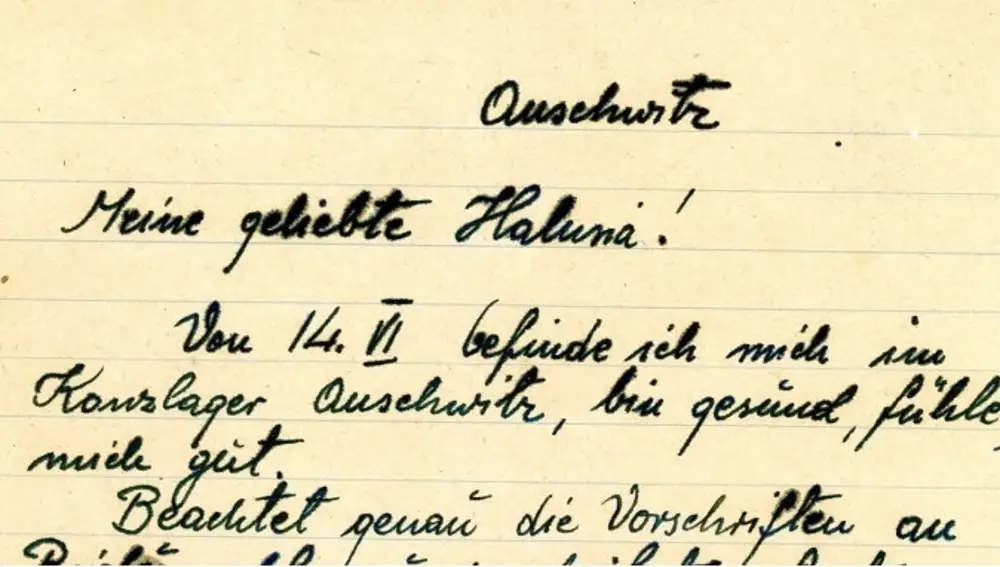 Auschwitz
Meine geliebte Halusia!
Von 14. VI befinde ich mich im
Konzlager Auschwitz, bin gesund, fühle
mich gut.
Beachtet genau die Vorschriften an